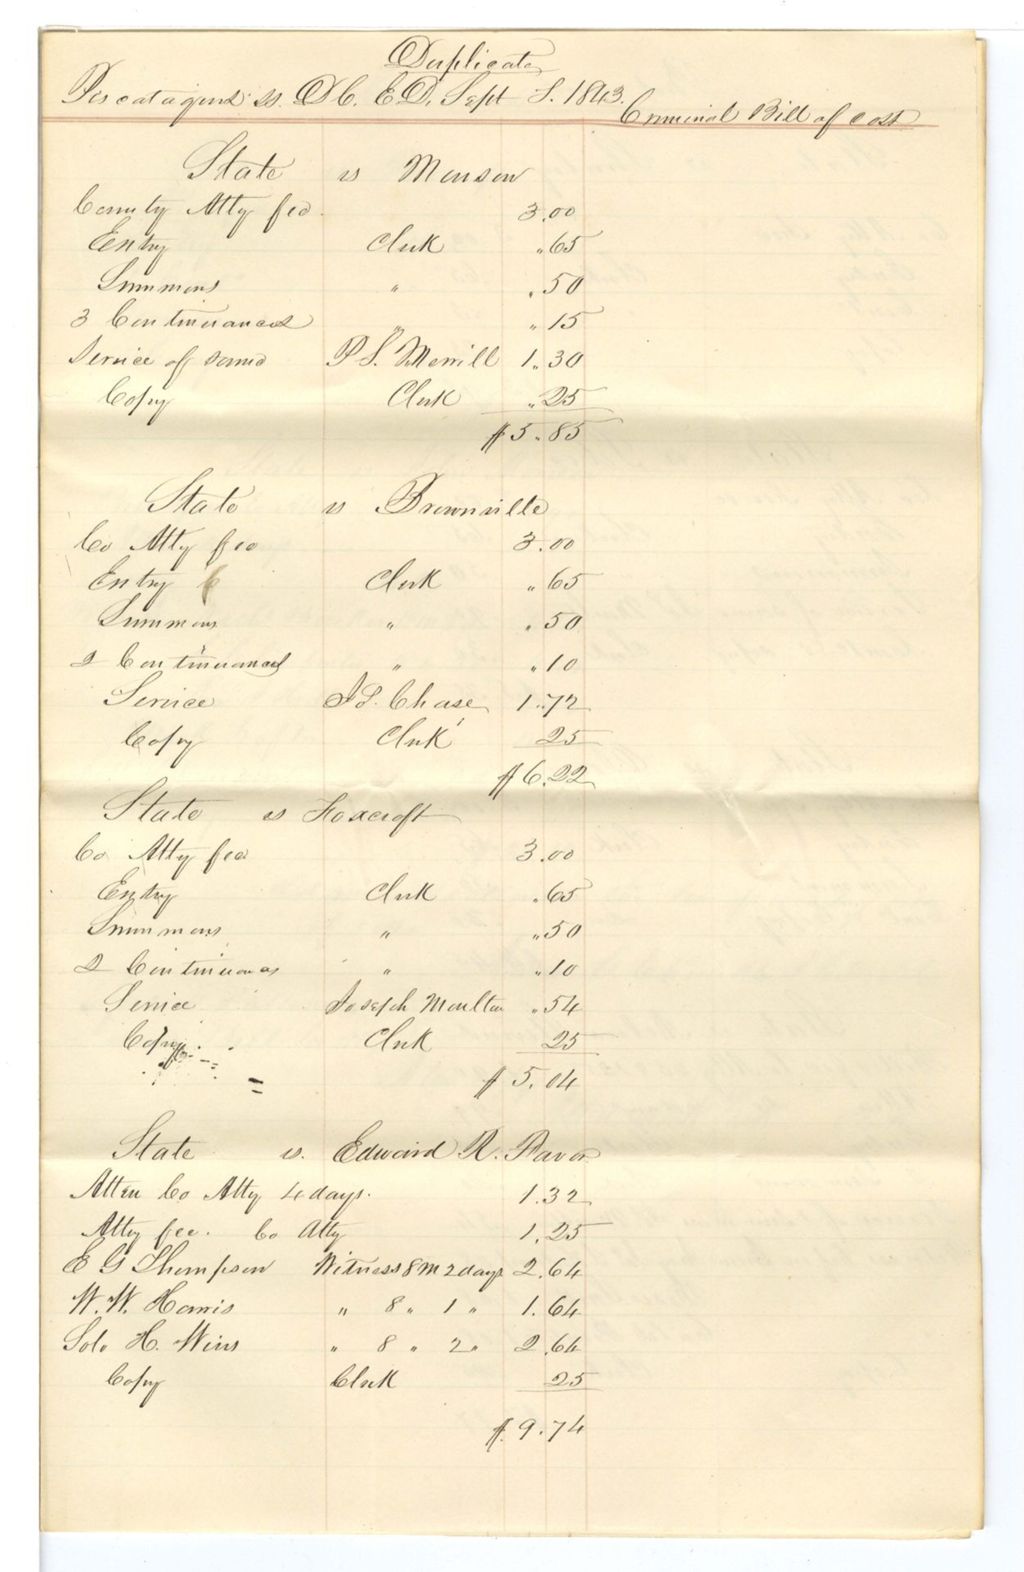 Duplicate
Piscataquis ss. D.C. E.D. Sept T. 1843.
Criminal Bill of cost
State vs Monson
County Atty fee 3.00
Entry Clerk .65
Summons " .50
3 Continuances " .15
Service of same P S. Merrill 1.30
Copy Clerk .25
$5.85
State vs Brownville
Co Atty fee 3.00
Entry Clerk .65
Summons " .50
2 Continuances " .10
Service Chase 1.72
Copy Clerk 25
$6.22
State vs Foxcroft
Co Atty fee 3.00
Entry Clerk .65
Summons " .50
2 Continuances " .10
Service Joseph Moulton .54
Copy Clerk 25
$5.04
State vs. Edward R. Favor
Atten Co Atty 4 days. 1.32
Atty fee. Co Atty 1.25
E G Thompson Witness 8 M 2 days 2.64
W. W. Harris " 8 " 1 " 1.64
Solo H. " 8 " 2 " 2.64
Copy Clerk 25
$9.74